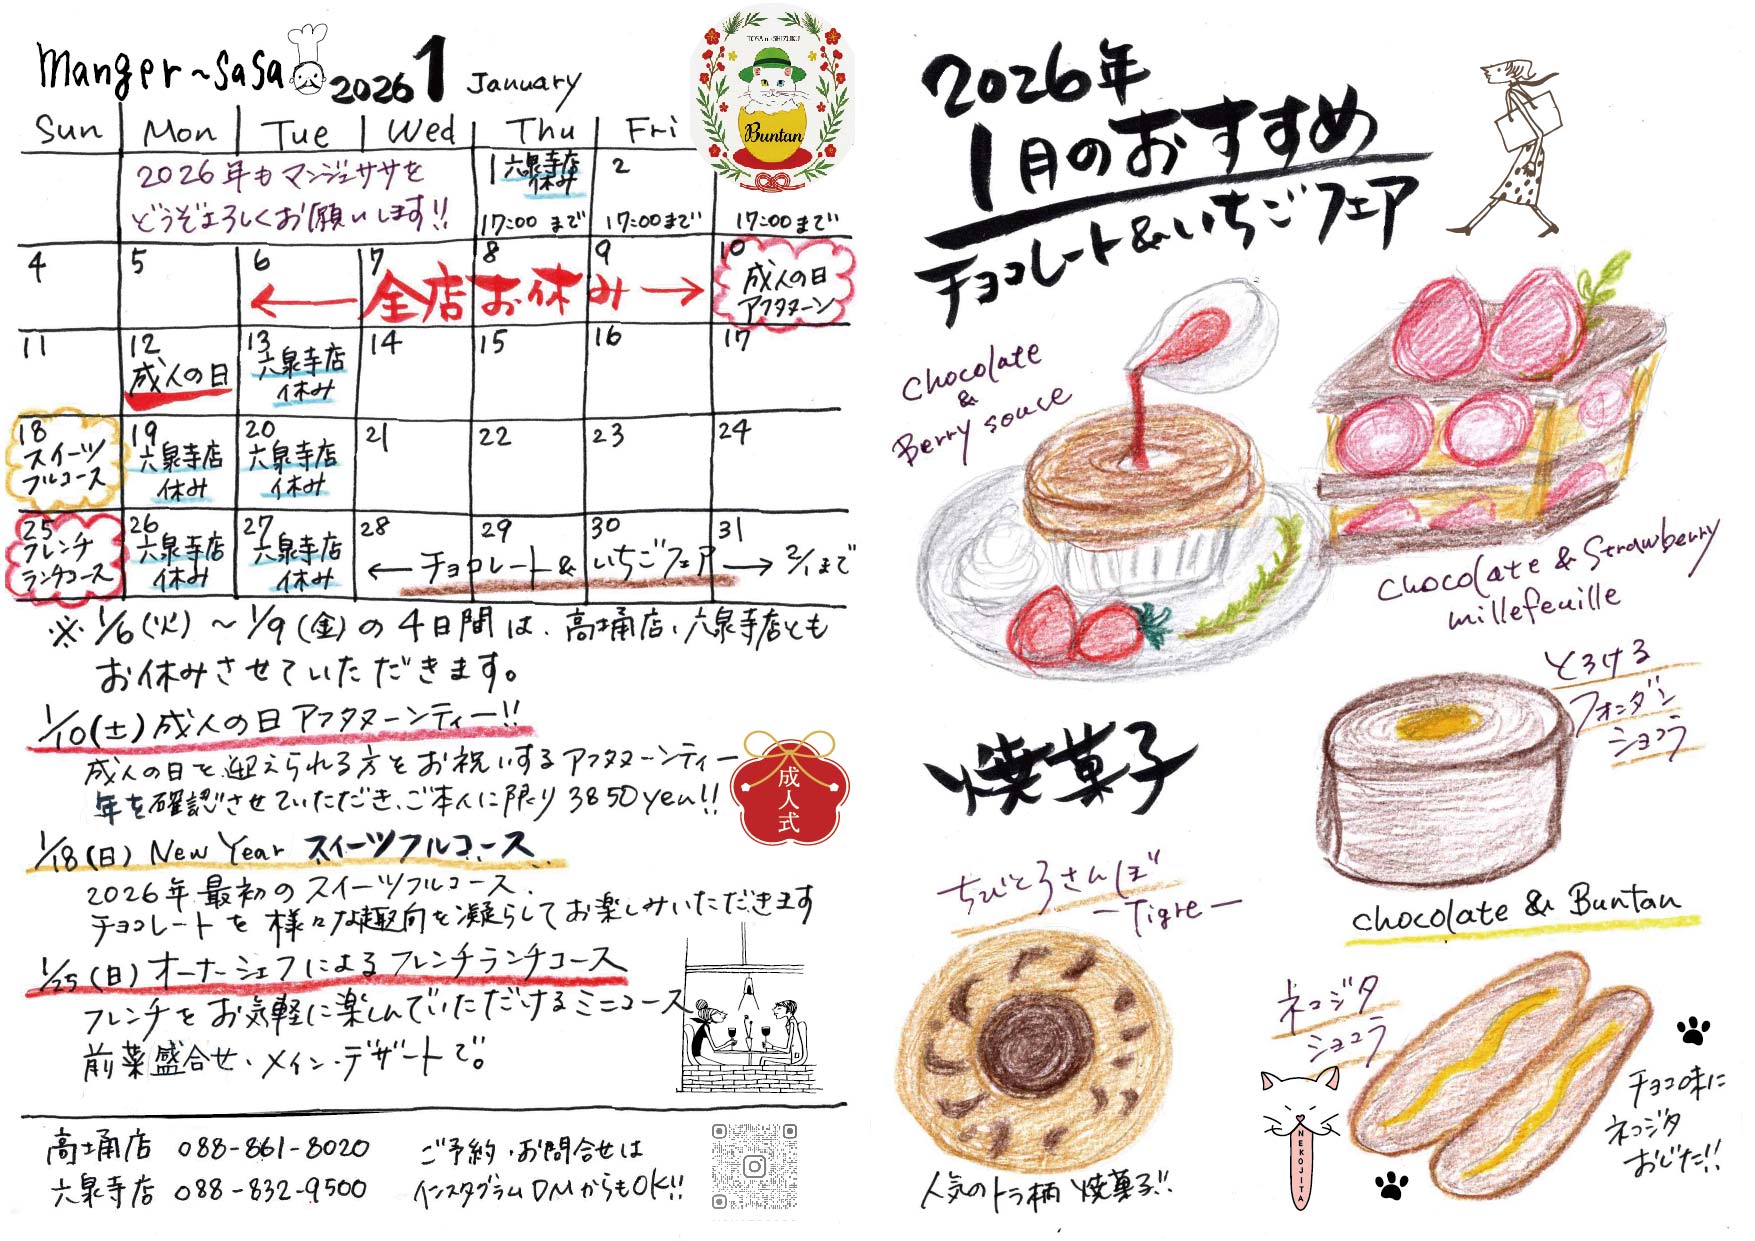 manger~sasa 2026 1 January
TOSA no SHIZUKU
Buntan
Sun Mon Tue Wed Thu Fri
2026年もマンジェササを
どうぞよろしくお願いします!!
1 六泉寺店
休み
17:00まで
2
17:00まで
17:00まで
4 5 6 7 8 9 10
← 全店お休み →
成人の日
アフタヌーン
11 12 13 14 15 16 17
成人の日
六泉寺店
休み
18 19 20 21 22 23 24
スイーツ
フルコース
六泉寺店
休み
六泉寺店
休み
25 26 27 28 29 30 31
フレンチ
ランチコース
六泉寺店
休み
六泉寺店
休み
← チョコレート&いちごフェア → 2/1まで
※ 1/6(火)~1/9(金)の4日間は、高埇店、六泉寺店とも
お休みさせていただきます。
1/10(土)成人の日アフタヌーンティー!!
成人の日を迎えられる方をお祝いするアフタヌーンティー
年を確認させていただき、ご本人に限り3850yen!!
成人式
1/18(日) New Year スイーツフルコース
2026年最初のスイーツフルコース、
チョコレートを様々な趣向を凝らしてお楽しみいただきます
1/25(日)オーナーシェフによるフレンチランチコース
フレンチをお気軽に楽しんでいただけるミニコース
前菜盛合せ・メイン・デザートで。
高埇店 088-861-8020
六泉寺店 088-832-9500
ご予約・お問合せは
インスタグラムDMからもOK!!
2026年
1月のおすすめ
チョコレート&いちごフェア
chocolate
&
Berry souce
chocolate & Strawberry
millefeuille
とろける
フォンダン
ショコラ
chocolate & Buntan
焼菓子
ちびとらさんぽ
-Tigre-
人気のトラ柄焼菓子!!
ネコジタ
ショコラ
NEKOJITA
チョコ味に
ネコジタ
おじた!!